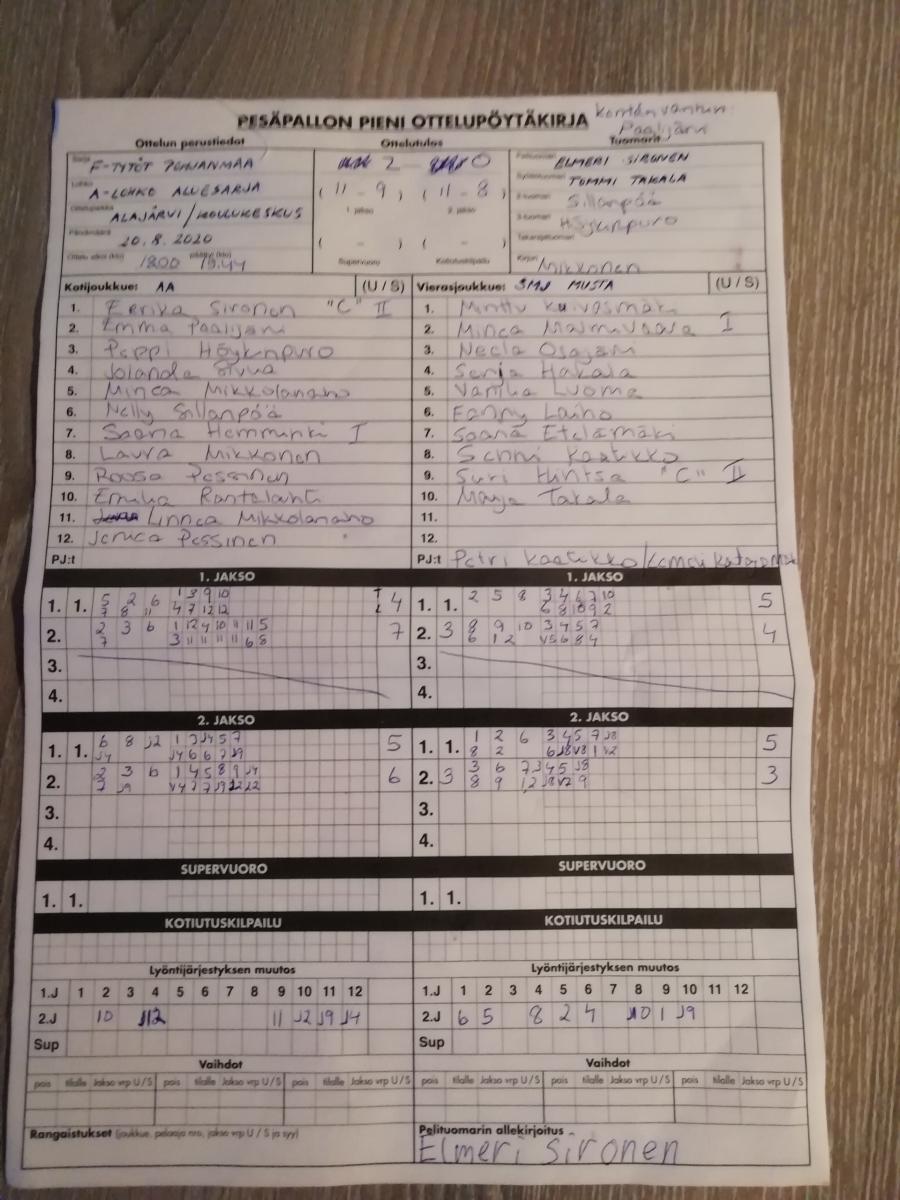 PESÄPALLON PIENI OTTELUPÖYTÄKIRJA
Paalijärvi
Ottelun perustiedot Ottelutulos Tuomarit
Sarja F-TYTÖT POHJANMAA
2 - 0
Pelituomari ELMERI SIRONEN
Lohko A-LOHKO ALUESARJA
(11 - 9) (11 - 8)
Syöttötuomari TOMMI TAKALA
Ottelupaikka ALAJÄRVI/KOULUKESKUS
1. jakso 2. jakso
2-tuomari Sillanpää
Päivämäärä 20.8.2020
3-tuomari Höykinpuro
( - ) ( - )
Takarajatuomari
Ottelu alkoi (klo) 18.00 päättyi (klo) 19.44
Supervuoro Kotiutuskilpailu
Kirjuri Mikkonen
Kotijoukkue: AA (U / S) Vierasjoukkue: SMJ MUSTA (U / S)
1. Eerika Sironen "C" II 1. Minttu Kuivasmäki
2. Emma Paalijärvi 2. Minea I
3. Peppi Höykinpuro 3. Neela Osajärvi
4. Jolanda Sivua 4. Senja Hakala
5. Minea Mikkolanaho 5. Vanika Luoma
6. Nelly Sillanpää 6. Fanny Laiho
7. Saana Hemminki I 7. Saana Etelämäki
8. Laura Mikkonen 8. Senni Kaatikko
9. Roosa Pessinen 9. Suvi Hintsa "C" II
10. Emilia Rantalahti 10. Maija Takala
11. Linnea Mikkolanaho 11.
12. Jemica Pessinen 12.
PJ:t PJ:t Petri Kaatikko/
1. JAKSO 1. JAKSO
1. 1. 5 2 6 1 3 9 10 4 1. 1. 2 5 8 3 4 6 7 10 5
7 8 11 4 7 12 12 6 8 10 9 2
2. 2 3 6 1 12 4 10 11 11 5 7 2. 3 8 9 10 3 4 5 7 4
7 3 11 11 11 11 6 8 6 1 2 V5 6 8 4
3. 3.
4. 4.
2. JAKSO 2. JAKSO
1. 1. 6 8 J2 1 3 J4 5 7 5 1. 1. 1 2 6 3 4 5 7 J8 5
J4 J4 6 6 7 J9 8 2 6 J8 V8 1 V2
2. 2 3 6 1 4 5 8 9 J4 6 2. 3 3 6 7 3 4 5 J8 3
7 J9 V4 7 7 J9 8 9
3. 3.
4. 4.
SUPERVUORO SUPERVUORO
1. 1. 1. 1.
KOTIUTUSKILPAILU KOTIUTUSKILPAILU
Lyöntijärjestyksen muutos Lyöntijärjestyksen muutos
1.J 1 2 3 4 5 6 7 8 9 10 11 12 1.J 1 2 3 4 5 6 7 8 9 10 11 12
2.J 10 J12 11 J2 J9 J4 2.J 6 5 8 2 4 J10 1 J9
Sup Sup
Vaihdot Vaihdot
pois tilalle Jakso vrp U / S pois tilalle Jakso vrp U / S pois tilalle Jakso vrp U / S pois tilalle Jakso vrp U / S pois tilalle Jakso vrp U / S pois tilalle Jakso vrp U / S
Rangaistukset (joukkue, pelaaja nro, jakso vrp U / S ja syy) Pelituomarin allekirjoitus
Elmeri Sironen